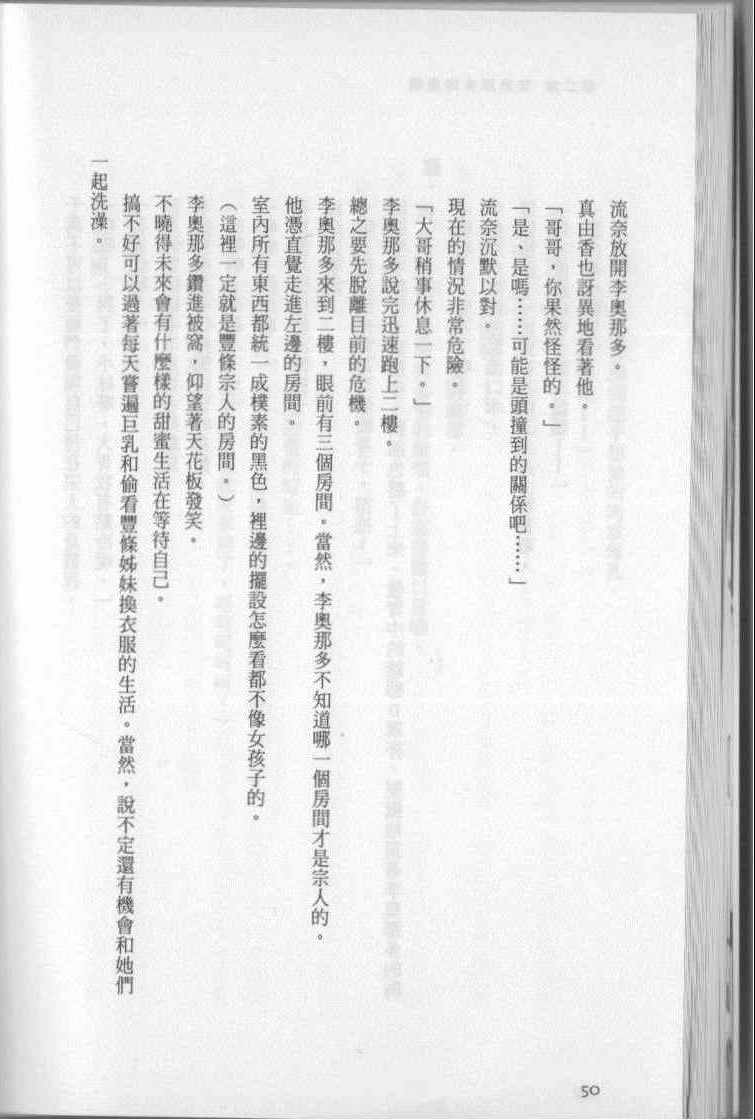 流奈放開李奧那多。
真由香也訝異地看著他。
「哥哥，你果然怪怪的。」
「是、是嗎……可能是頭撞到的關係吧……」
流奈沉默以對。
現在的情況非常危險。
「大哥稍事休息一下。」
李奧那多說完迅速跑上二樓。
總之要先脫離目前的危機。
李奧那多來到二樓，眼前有三個房間。當然，李奧那多不知道哪一個房間才是宗人的。
他憑直覺走進左邊的房間。
室內所有東西都統一成樸素的黑色，裡邊的擺設怎麼看都不像女孩子的。
（這裡一定就是豐條宗人的房間。）
李奧那多鑽進被窩，仰望著天花板發笑。
不曉得未來會有什麼樣的甜蜜生活在等待自己。
搞不好可以過著每天嘗遍巨乳和偷看豐條姊妹換衣服的生活。當然，說不定還有機會和她們
一起洗澡。
50